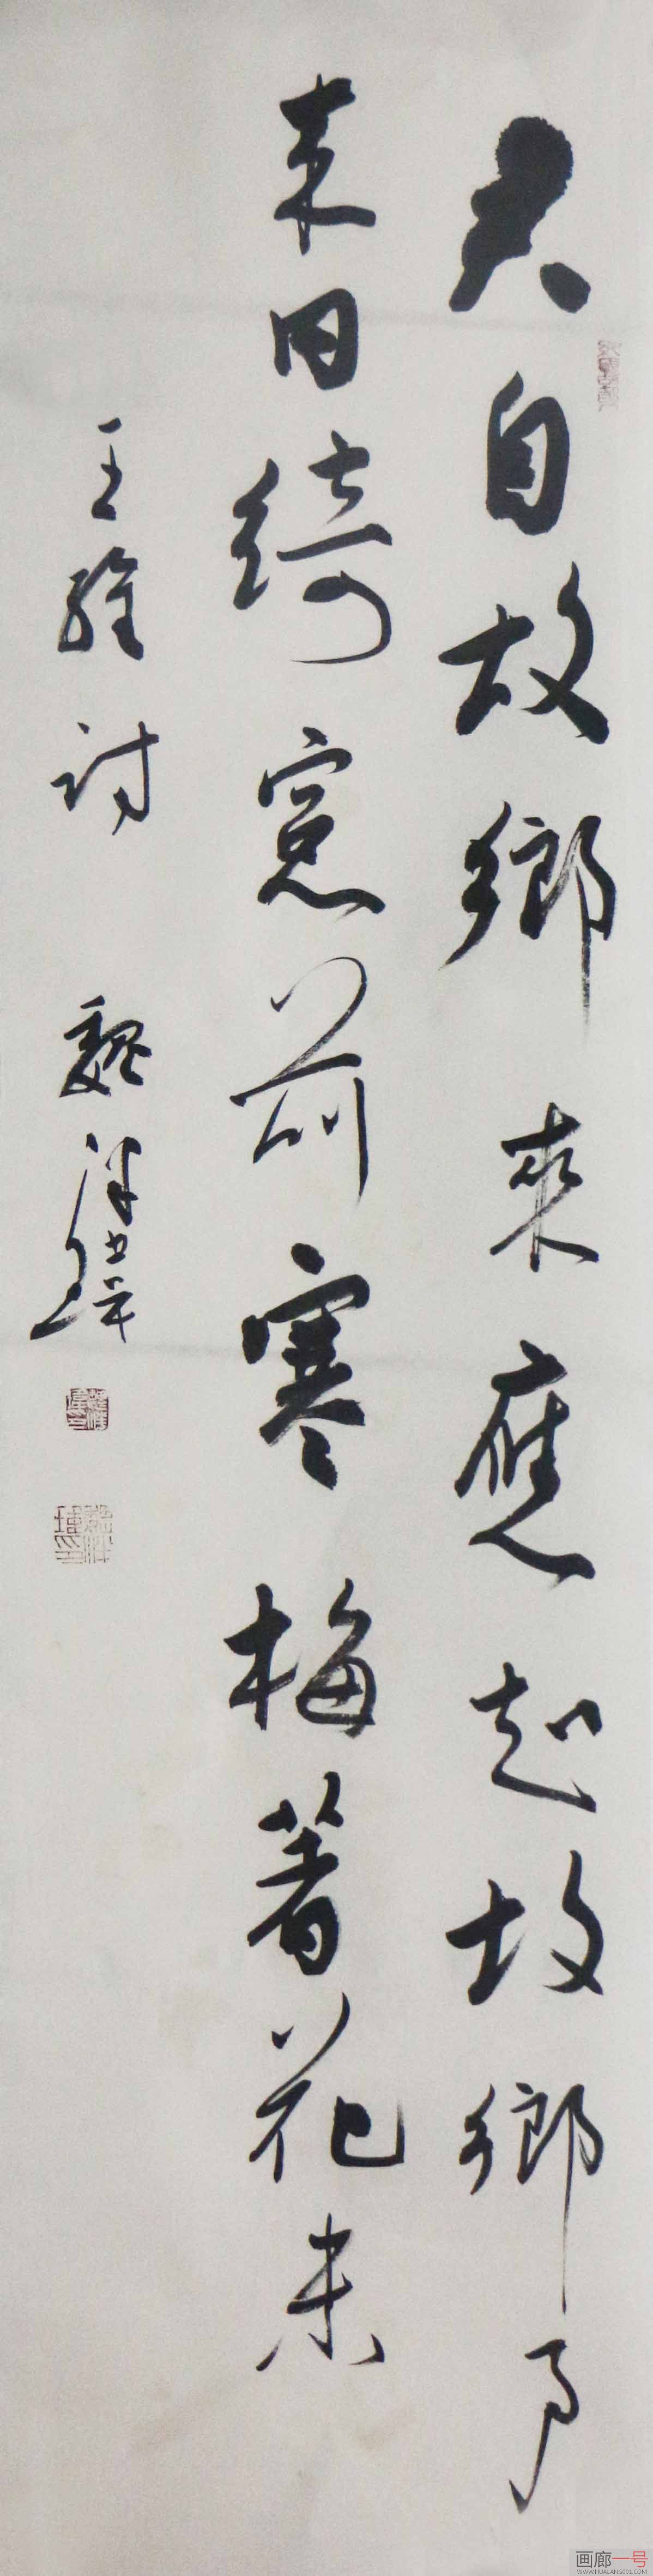 君自故鄉來應知故鄉事
来日綺窓前寒梅著花未
王維詩 魏
画廊一号
WWW.HUALANG001.COM